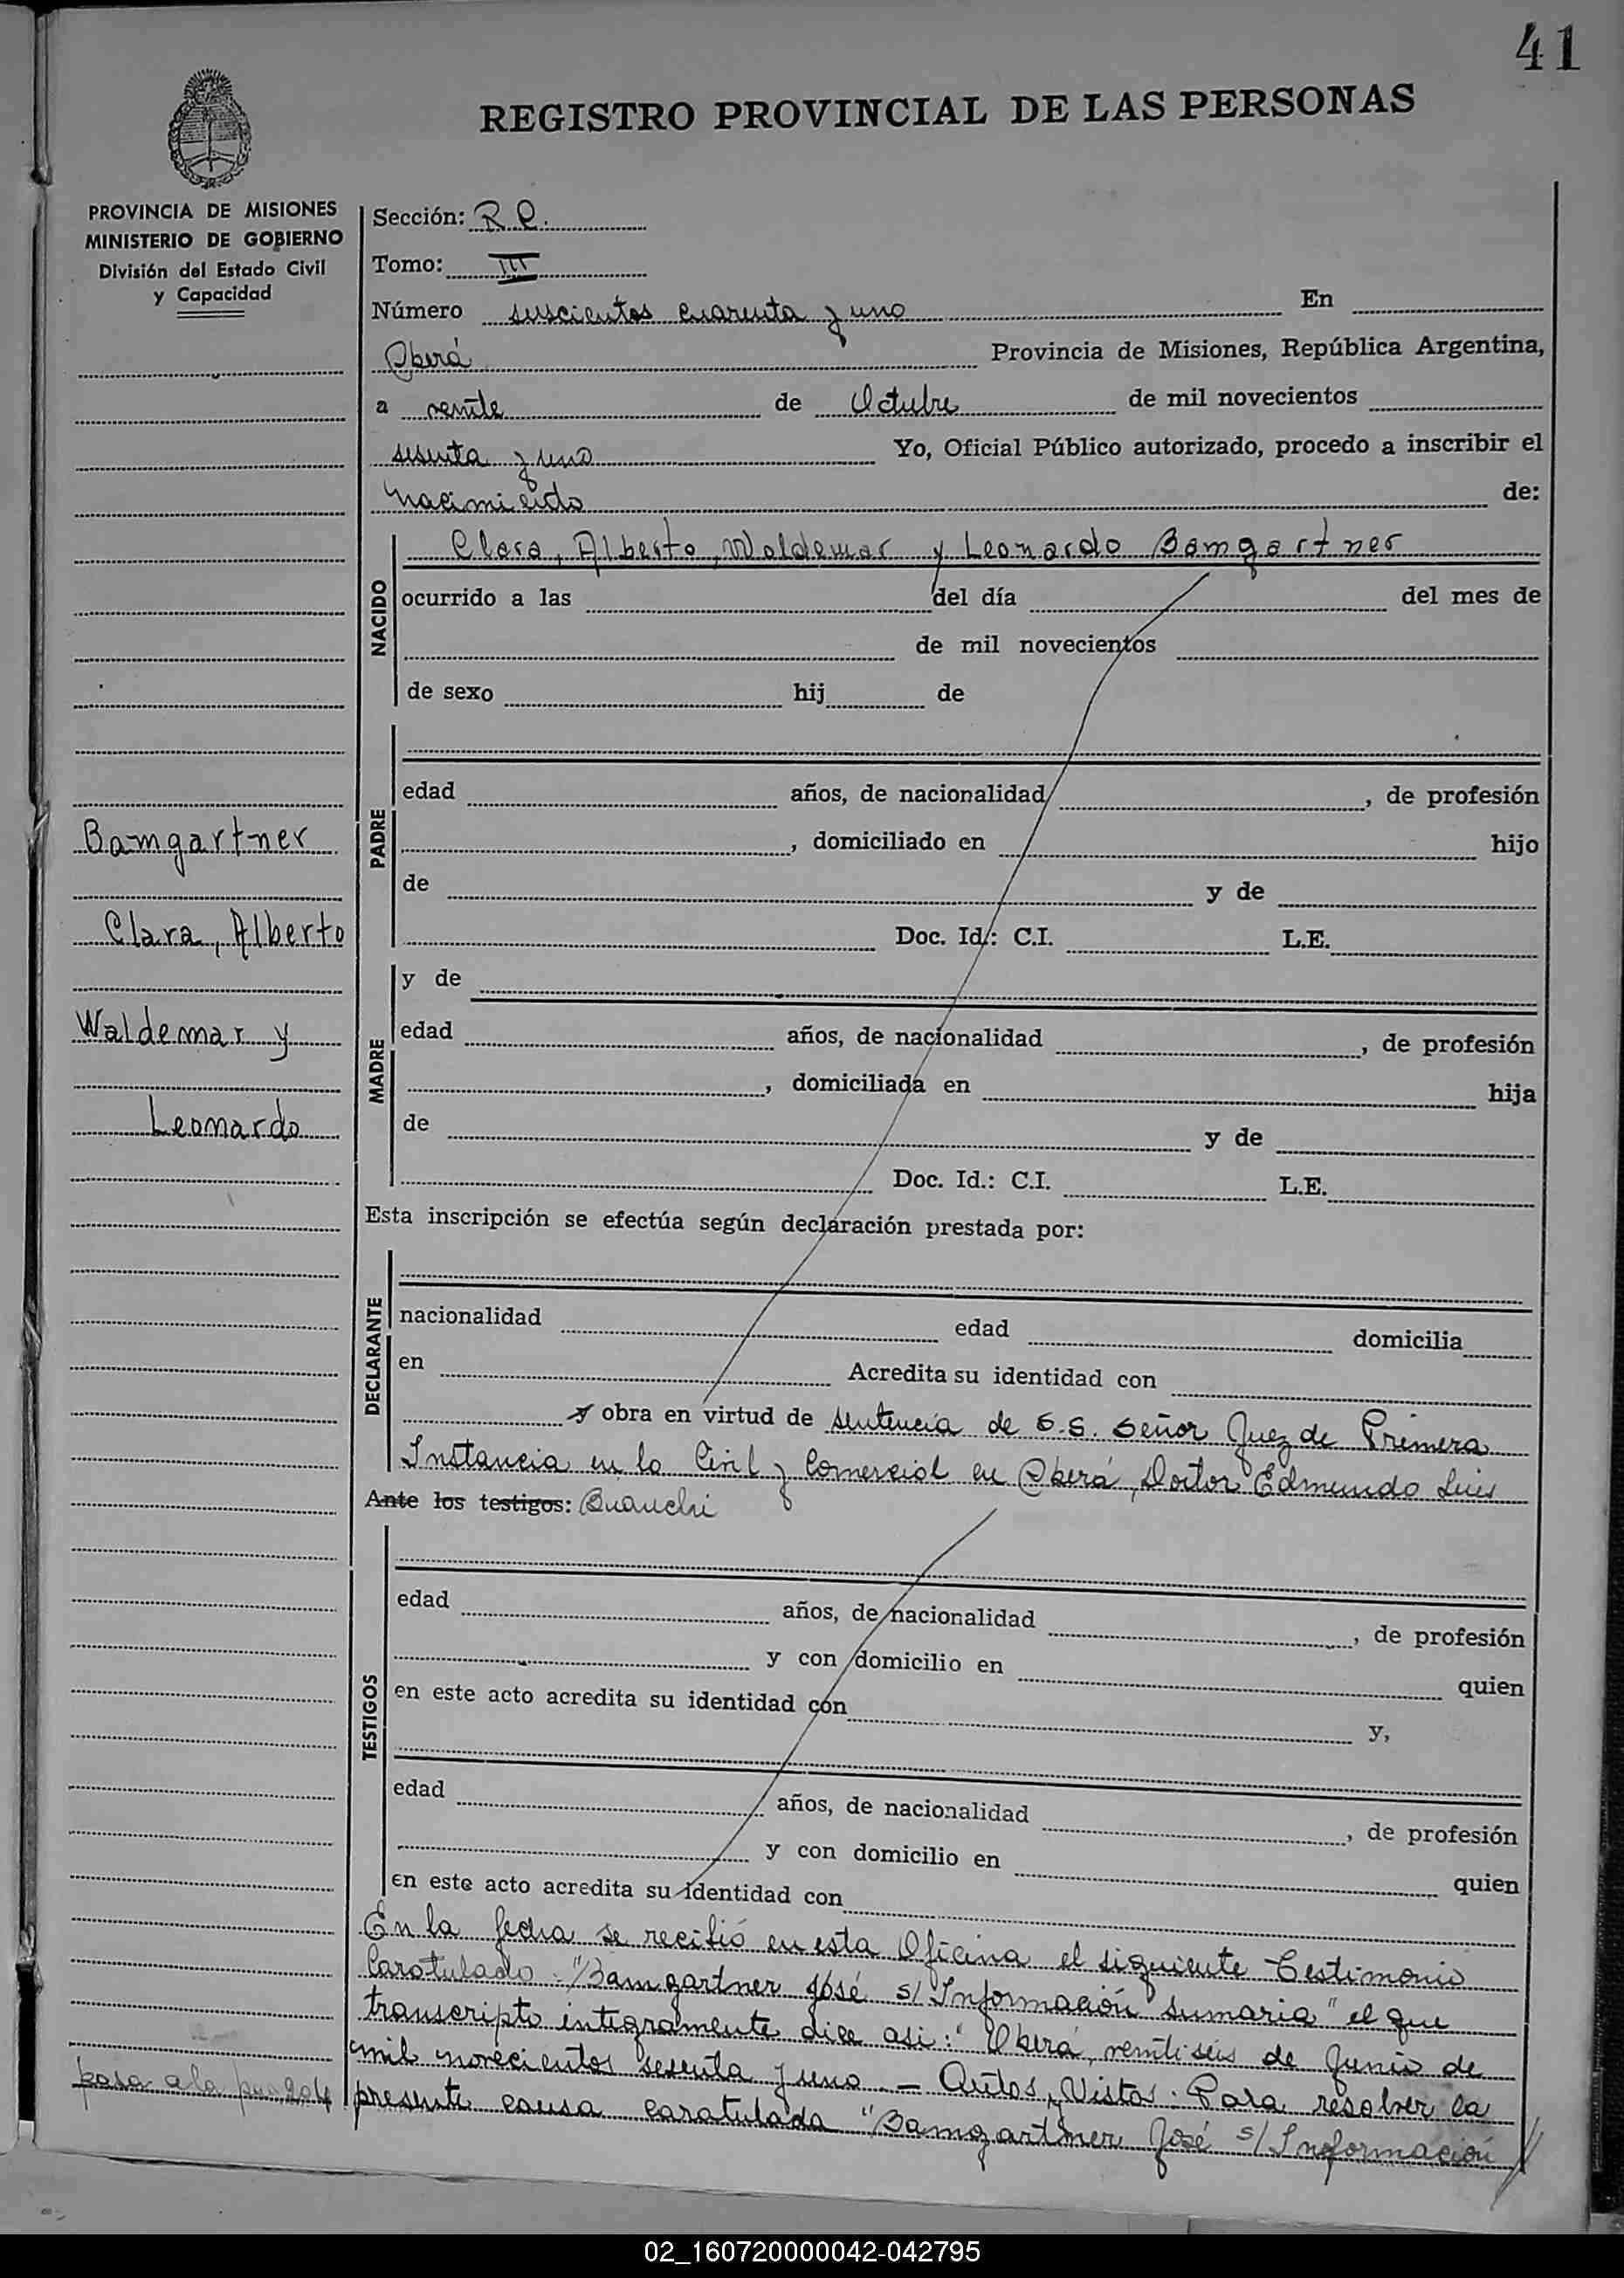 41
REGISTRO PROVINCIAL DE LAS PERSONAS
PROVINCIA DE MISIONES
MINISTERIO DE GOBIERNO
División del Estado Civil
y Capacidad
Sección: R.
Tomo: III
Número seiscientos cuarenta y uno En
Oberá Provincia de Misiones, República Argentina,
a veinte de Octubre de mil novecientos
sesenta y uno Yo, Oficial Público autorizado, procedo a inscribir el
nacimiento de:
NACIDO
Clara, Alberto, Waldemar y Leonardo Bamgartner
ocurrido a las del día del mes de
de mil novecientos
de sexo hij de
PADRE
edad años, de nacionalidad , de profesión
, domiciliado en hijo
de y de
Doc. Id.: C.I. L.E.
MADRE
y de
edad años, de nacionalidad , de profesión
, domiciliada en hija
de y de
Doc. Id.: C.I. L.E.
Bamgartner
Clara, Alberto
Waldemar y
Leonardo
Esta inscripción se efectúa según declaración prestada por:
DECLARANTE
nacionalidad edad domicilia
en Acredita su identidad con
y obra en virtud de sentencia de S.S. Señor Juez de Primera
Instancia en lo Civil y Comercial en Oberá, Doctor Edmundo Luis
Ante los testigos:
TESTIGOS
edad años, de nacionalidad , de profesión
y con domicilio en quien
en este acto acredita su identidad con y,
edad años, de nacionalidad , de profesión
y con domicilio en quien
en este acto acredita su identidad con
En la fecha se recibió en esta Oficina el siguiente Testimonio
Caratulado: "Bamgartner José s/ Información sumaria" el que
transcripto integramente dice asi: "Oberá, veintiseis de Junio de
mil novecientos sesenta y uno. - Autos, Vistos: Para resolver la
presente causa caratulada "Bamgartner José s/ Información //
pasa a la
02_160720000042-042795